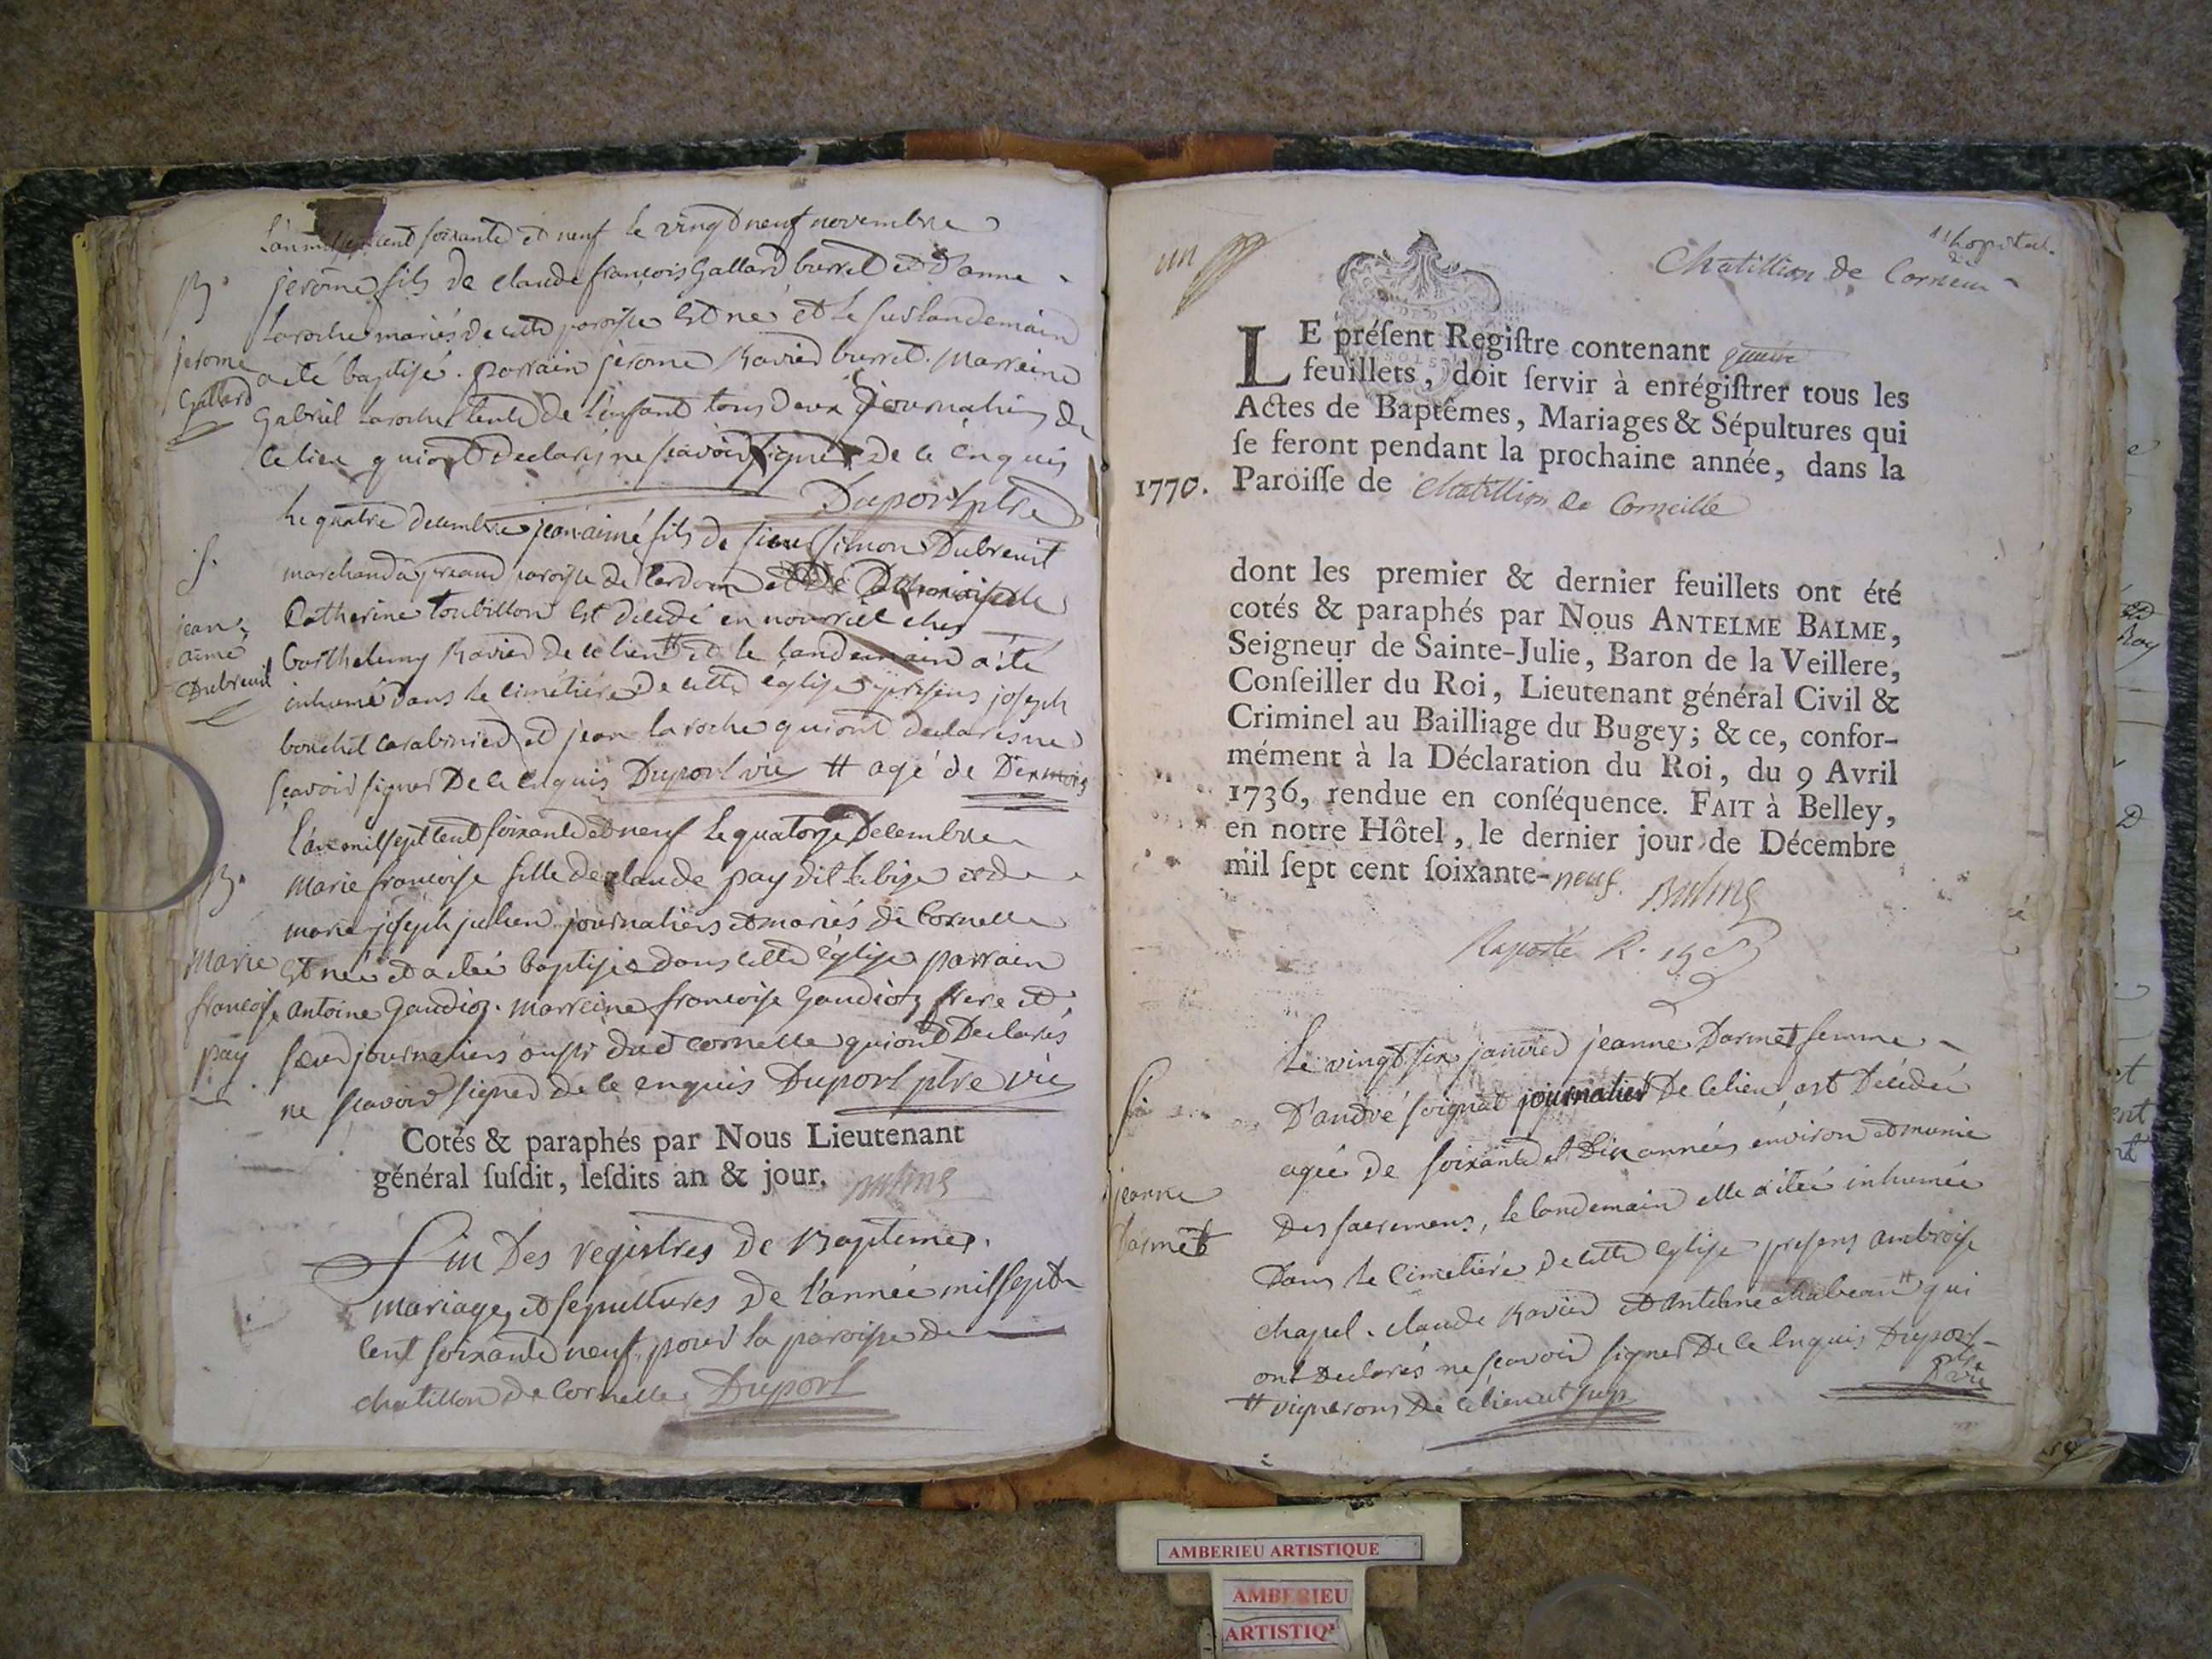 L'an mil sept cent soixante et neuf le vingt neuf novembre
B.
jerome
Gallard
jerome fils de claude françois Gallard burret et d'anne
Laroche mariés de cette paroisse est né et le surlandemain
a été baptisé. parrain jerome Ravier burret. Marreine
Gabriel Laroche tente de l'enfant tous deux journaliers de
ce lieu qui ont declarés ne scavoir signer de ce enquis
Duport ptre
S.
jean
aimé
Dubreuil
Le quatre decembre jean aimé fils de sieur Simon Dubreuil
marchand a paroisse de Cerdon et de
Catherine Toubillon est décédé en nourrice cher
Barthelemy Ravier de ce lieu # et le landemain a été
inhumé dans le cimétiére de cette église presens joseph
bouchet carabinier et jean laroche qui ont declarés ne
sçavoir signer De ce enquis Duport vic # agé de Dix mois
B.
Marie
françoise
pay
L'an mil sept cent soixante et neuf le quatorze Decembre
Marie françoise fille de claude pay dit et de
marie joseph julien journaliers et mariés de Cornelle
est née et a été baptisée dans cette église parrain
antoine Gaudioz. marreine françoise Gaudioz frere et
sœur journaliers aussi dud cornelle qui ont Declarés
ne scavoir signer de ce enquis Duport ptre vic
Cotés & paraphés par Nous Lieutenant
général ſuſdit, leſdits an & jour. Balme
Fin Des registres de Baptemes.
mariages et sepultures de l'année mil sept
cent soixante neuf pour la paroisse de
chatillon de Cornelle Duport
un
hopital.
Chatillion de Corneille
LE préſent Regiſtre contenant quatre
feuillets, doit ſervir à enrégiſtrer tous les
Actes de Baptêmes, Mariages & Sépultures qui
ſe feront pendant la prochaine année, dans la
1770. Paroiſſe de Chatillion de Corneille
dont les premier & dernier feuillets ont été
cotés & paraphés par Nous ANTELME BALME,
Seigneur de Sainte-Julie, Baron de la Veillere,
Conſeiller du Roi, Lieutenant général Civil &
Criminel au Bailliage du Bugey; & ce, confor-
mément à la Déclaration du Roi, du 9 Avril
1736, rendue en conſéquence. FAIT à Belley,
en notre Hôtel, le dernier jour de Décembre
mil ſept cent ſoixante-neuf. Balme
S.
jeanne
Darmet
Le vingt six janvier jeanne Darmet femme
D'andré soignat journalier De ce lieu est décédée
agée de soixante et Dix années environ et munie
Des sacremens, le landemain elle a été inhumée
Dans le Cimetiére de cette eglise presens ambroise
chapel. claude Ravier et antelme chabeau # qui
ont Declarés ne sçavoir signer De ce enquis Duport
ptre vic
# vignerons De ce lieu
AMBERIEU ARTISTIQUE
AMBERIEU
ARTISTIQ